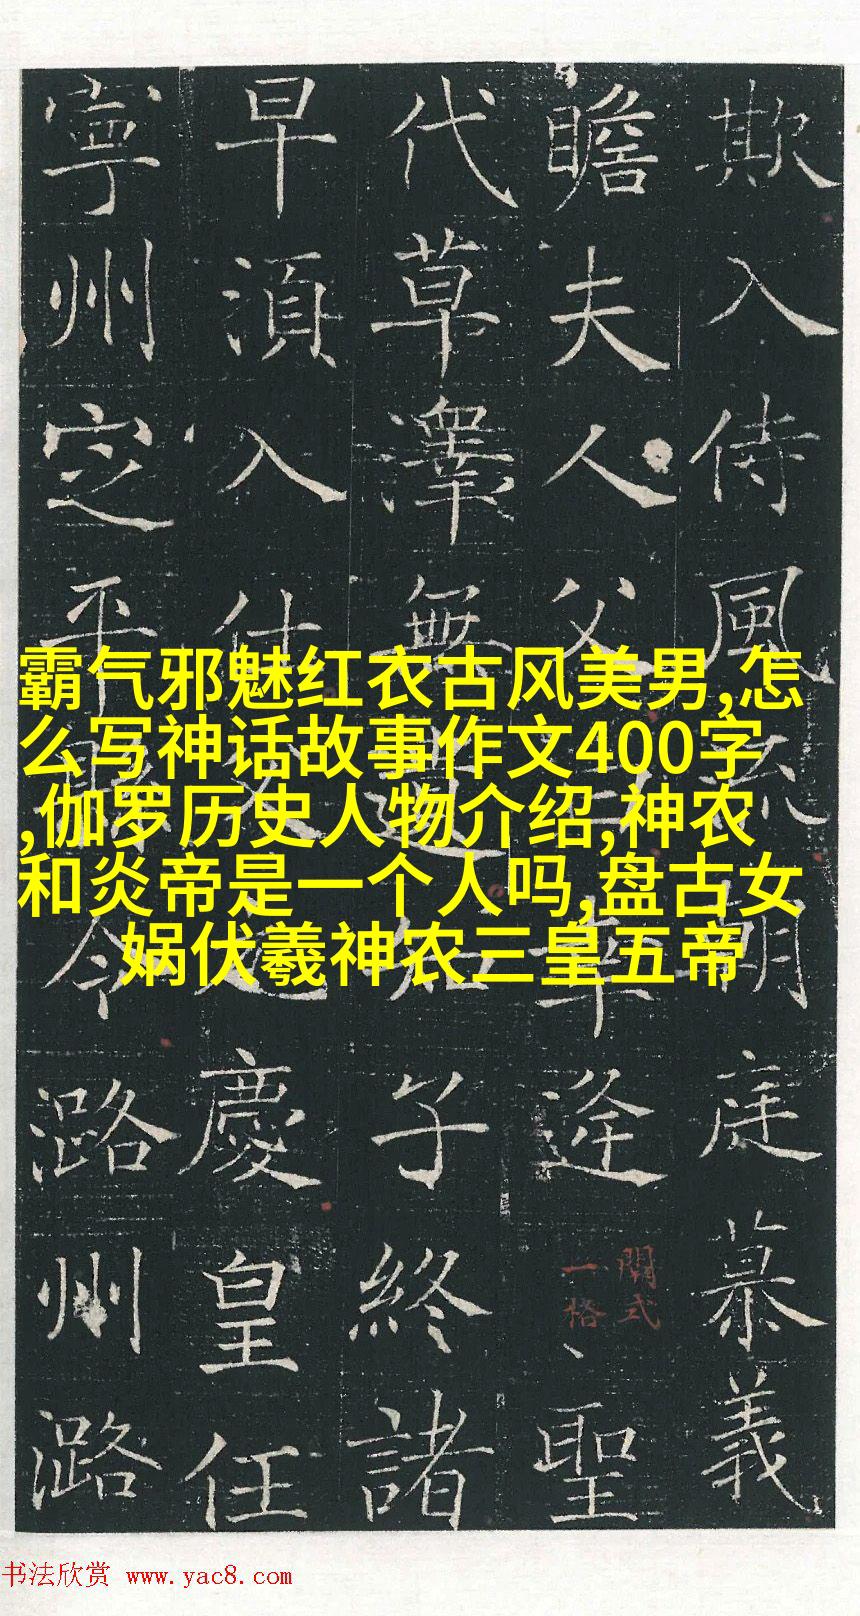 欺入侍風流朝庭慕義
瞻夫人父韋逄
聖
開式
一格
代草澤無子終諸
早湏入仕慶皇任
寧州定平縣令潞州潞
霸气邪魅红衣古风美男,怎
么写神话故事作文400字
,伽罗历史人物介绍,神农
和炎帝是一个人吗,盘古女
娲伏羲神农三皇五帝
书法欣赏 www.yac8.com